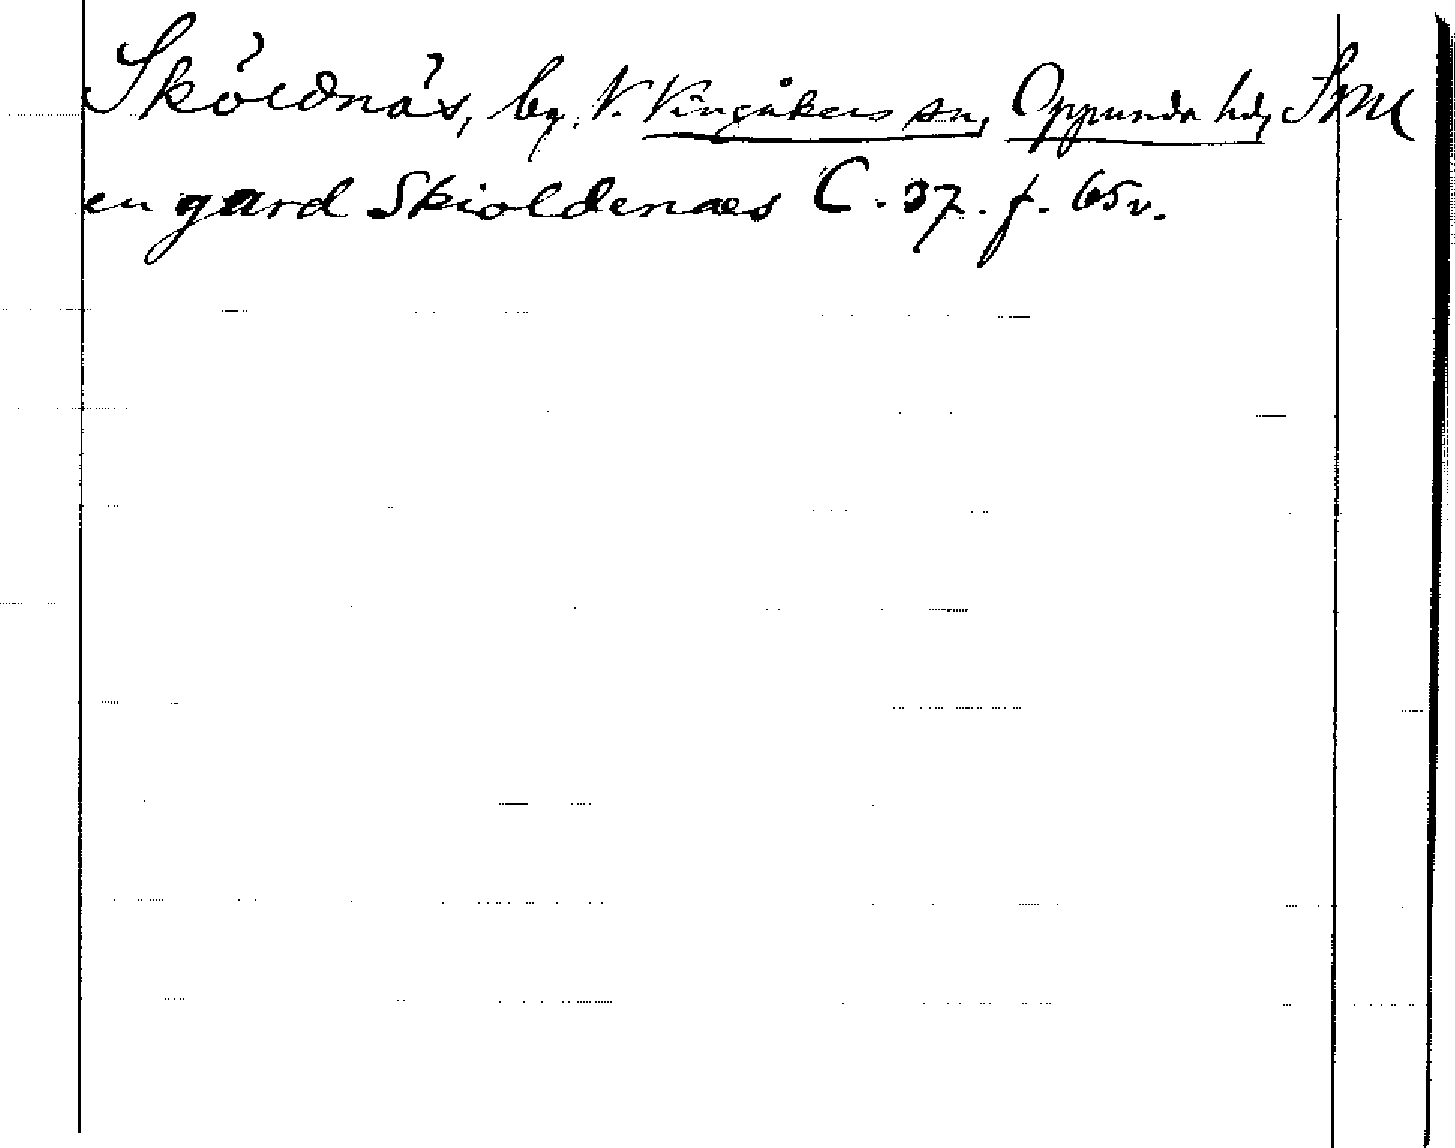 Sköldnäs, by, V. Vingåkers sn, Oppunda hd, Sml
en gard Skioldenæs C. 37. f. 65v.